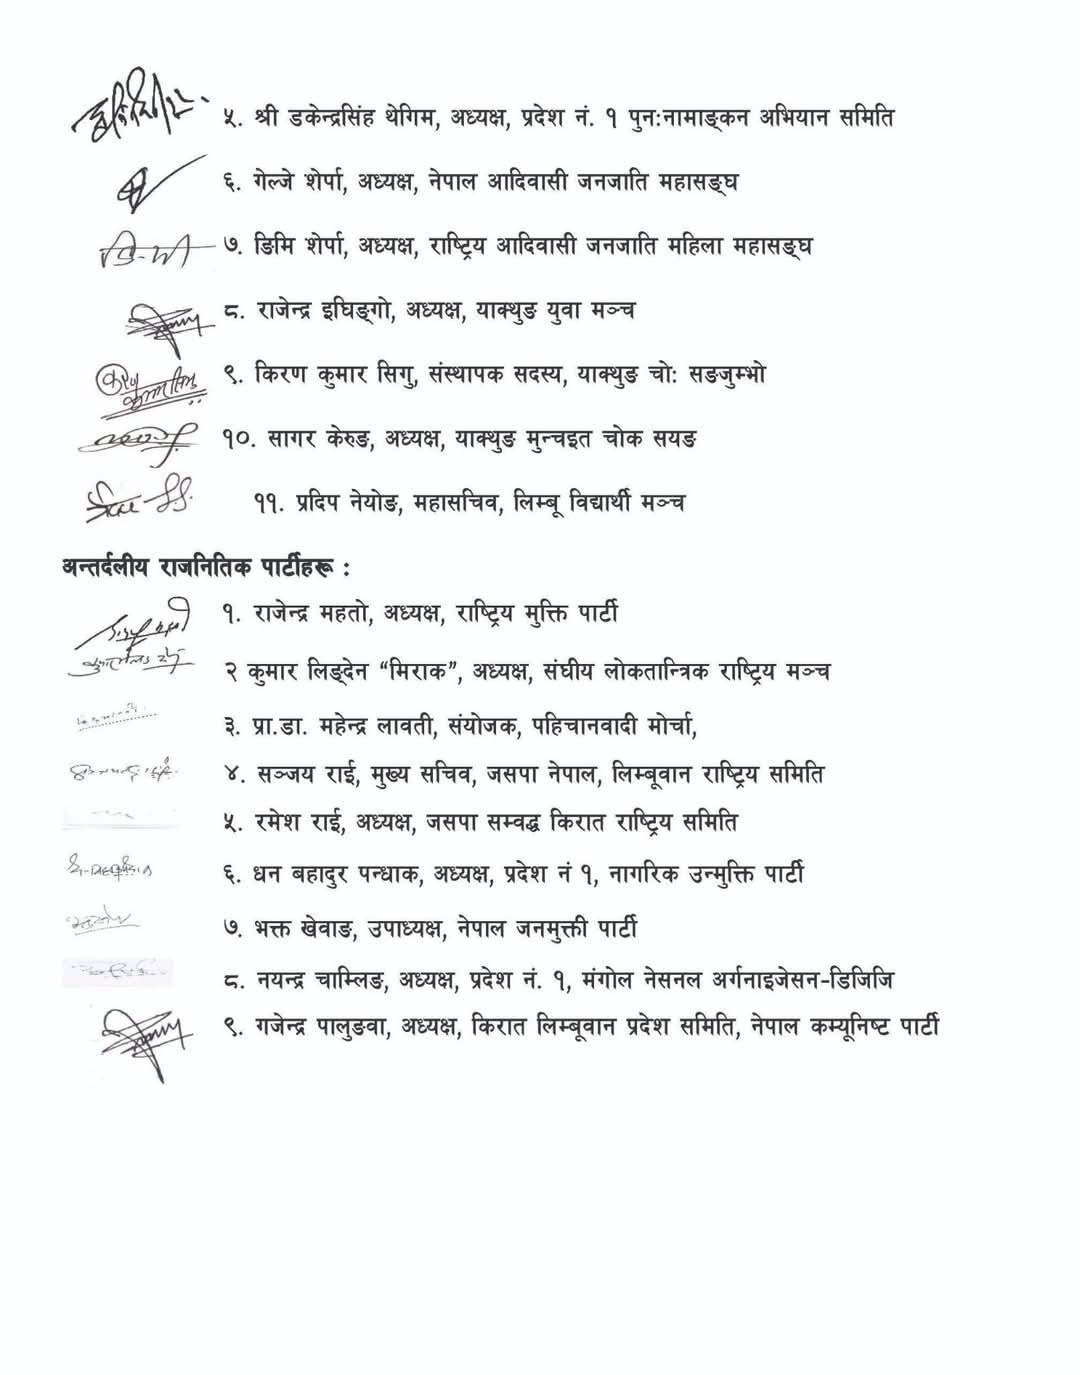 ५. श्री डकेन्द्रसिंह थेगिम, अध्यक्ष, प्रदेश नं. १ पुन:नामाङ्कन अभियान समिति
६. गेल्जे शेर्पा, अध्यक्ष, नेपाल आदिवासी जनजाति महासङ्घ
७. ङिमि शेर्पा, अध्यक्ष, राष्ट्रिय आदिवासी जनजाति महिला महासङ्घ
८. राजेन्द्र इघिङ्गो, अध्यक्ष, याक्थुङ युवा मञ्च
९. किरण कुमार सिगु, संस्थापक सदस्य, याक्थुङ चो: सङजुम्भो
१०. सागर केरुङ, अध्यक्ष, याक्थुङ मुन्चइत चोक सयङ
११. प्रदिप नेयोङ, महासचिव, लिम्बू विद्यार्थी मञ्च
अन्तर्दलीय राजनितिक पार्टीहरू :
१. राजेन्द्र महतो, अध्यक्ष, राष्ट्रिय मुक्ति पार्टी
२ कुमार लिङ्देन “मिराक”, अध्यक्ष, संघीय लोकतान्त्रिक राष्ट्रिय मञ्च
३. प्रा.डा. महेन्द्र लावती, संयोजक, पहिचानवादी मोर्चा,
४. सञ्जय राई, मुख्य सचिव, जसपा नेपाल, लिम्बूवान राष्ट्रिय समिति
५. रमेश राई, अध्यक्ष, जसपा सम्वद्ध किरात राष्ट्रिय समिति
६. धन बहादुर पन्धाक, अध्यक्ष, प्रदेश नं १, नागरिक उन्मुक्ति पार्टी
७. भक्त खेवाङ, उपाध्यक्ष, नेपाल जनमुक्ती पार्टी
८. नयन्द्र चाम्लिङ, अध्यक्ष, प्रदेश नं. १, मंगोल नेसनल अर्गनाइजेसन-डिजिजि
९. गजेन्द्र पालुङवा, अध्यक्ष, किरात लिम्बूवान प्रदेश समिति, नेपाल कम्यूनिष्ट पार्टी